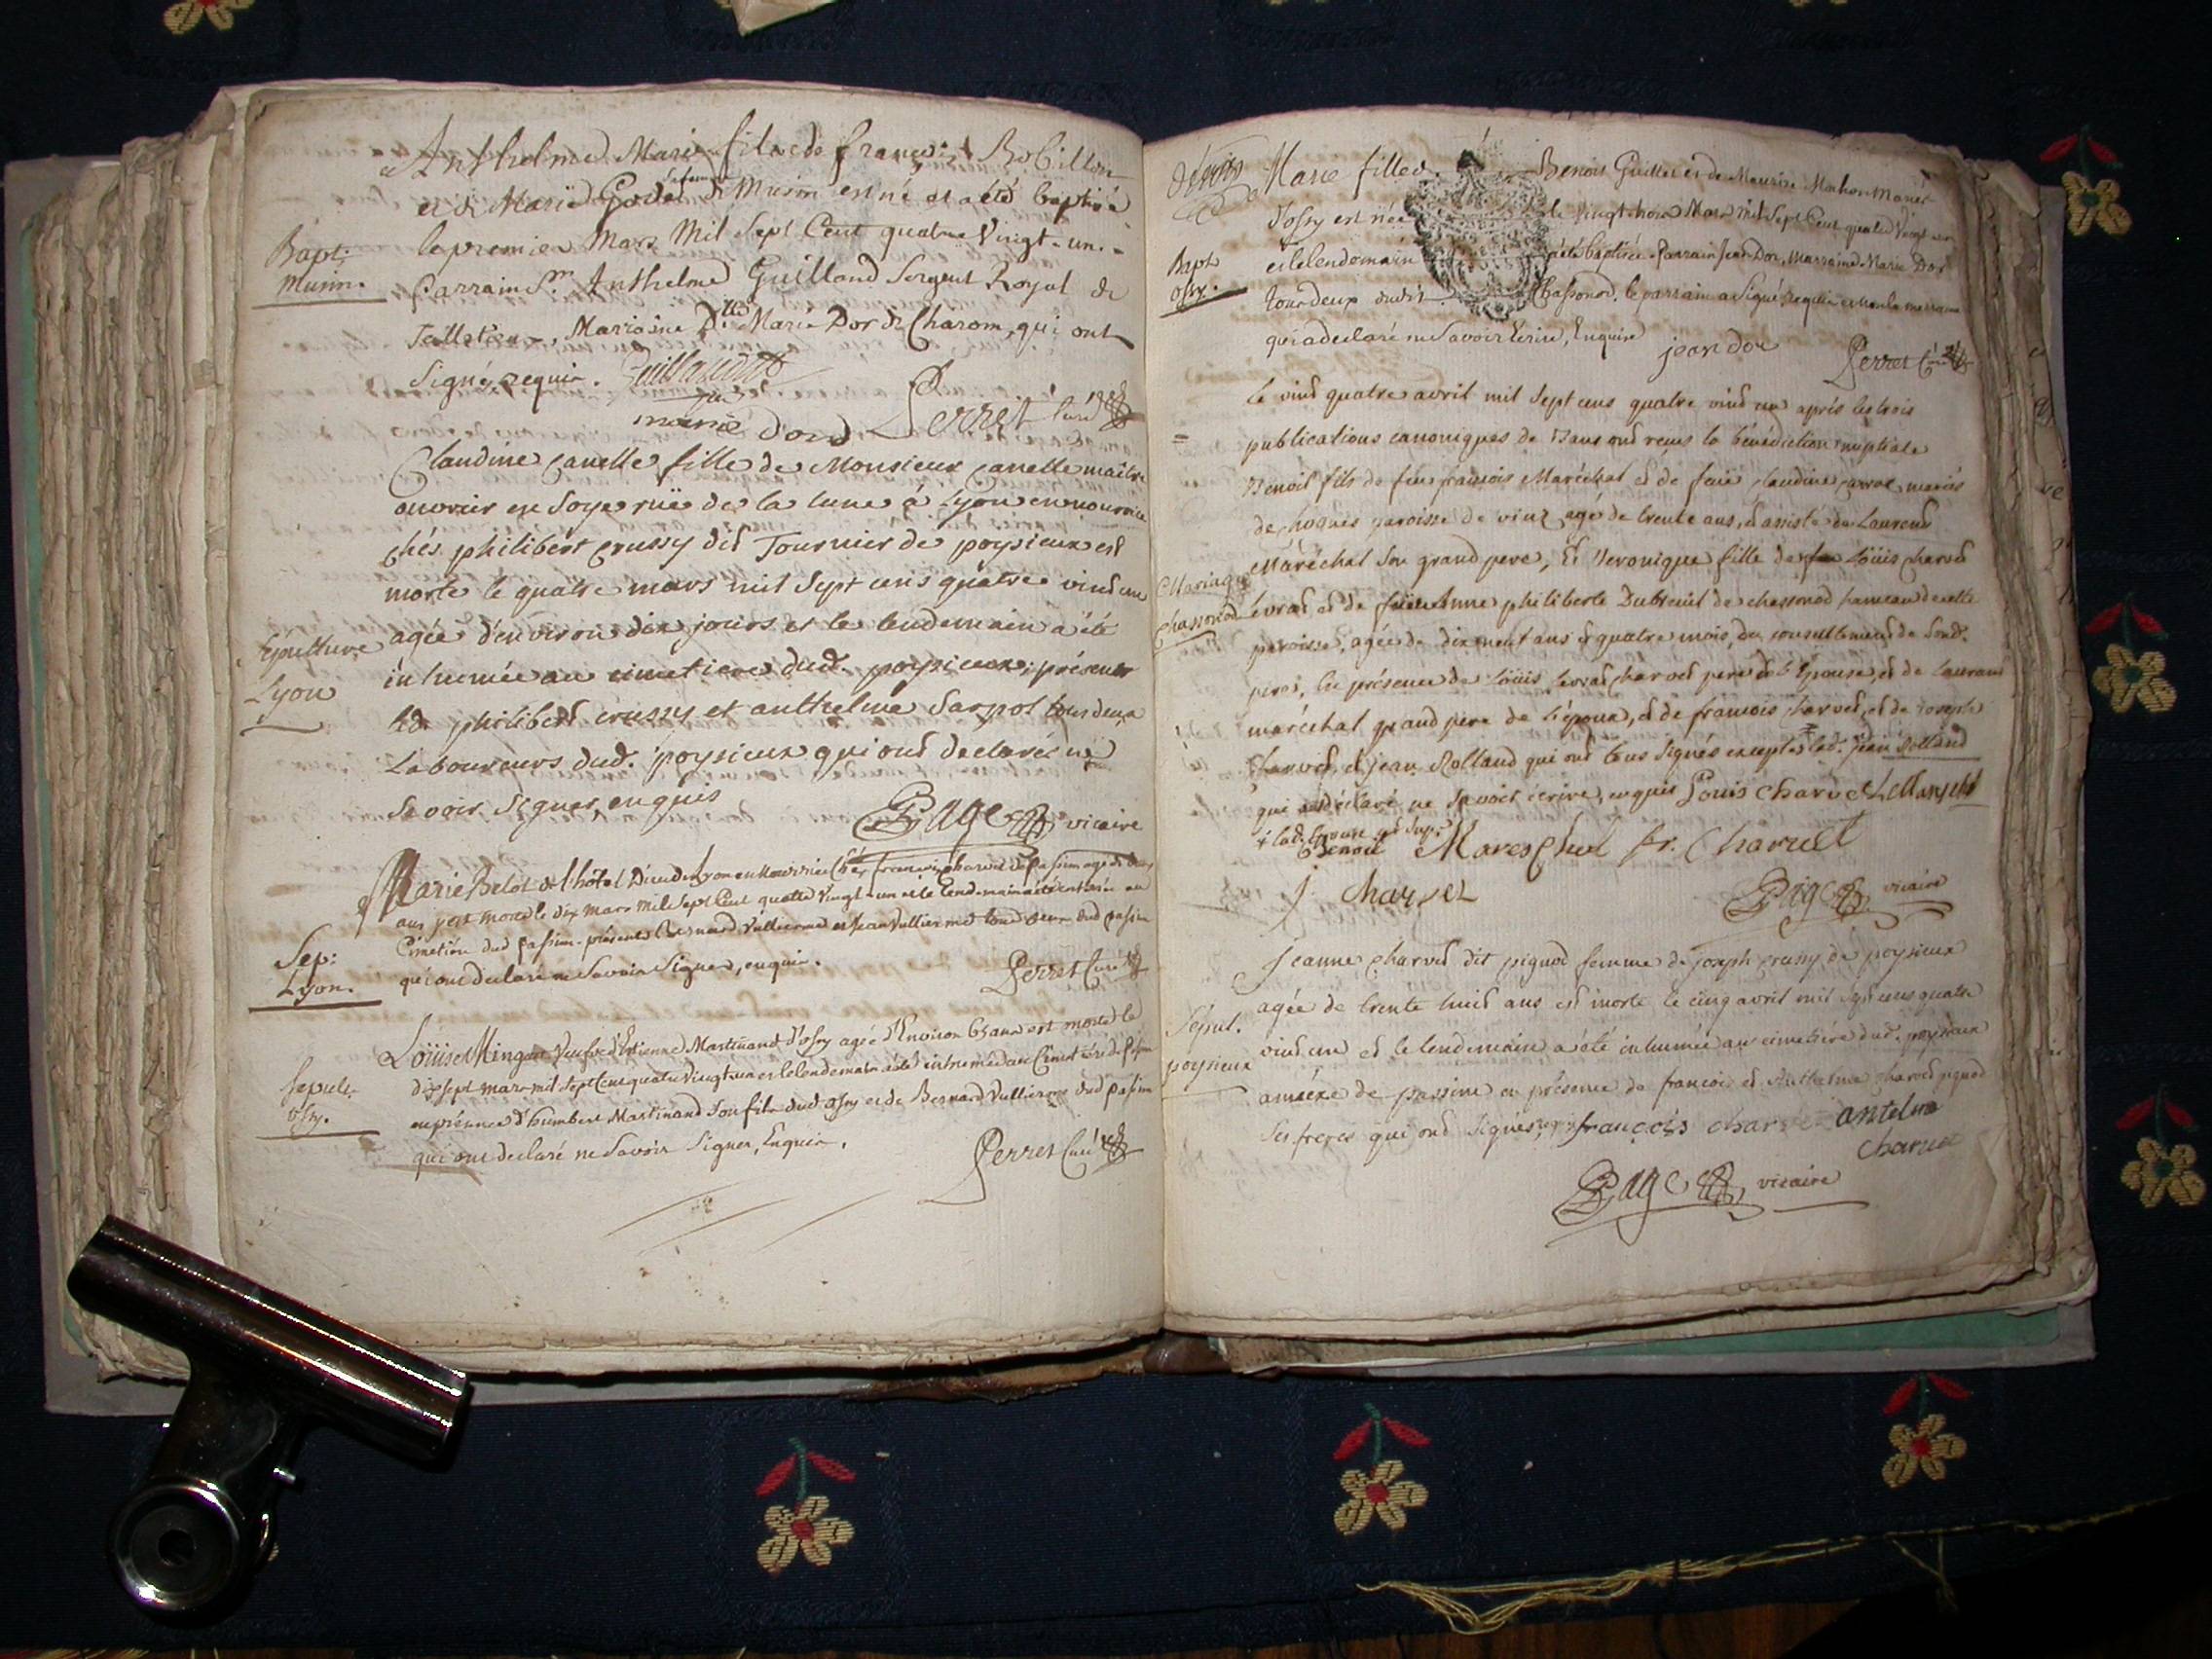 Anthelme Marie fils de françois Robillon
et de Marie Godet de Musin est né et a été baptisé
Bapt:
Musin.
le premier Mars Mil Sept Cent quatre Vingt-un.
Parrain Sr. Anthelme Guilland Sergent Royal de
Marraine Dlle Marie Dor de Charom, qui ont
Signé, requis.
marie dord Perret Curé
Claudine Canelle fille de Monsieur Canelle maitre
ouvrier en Soye rüe de la lune à Lyon en nourrice
chés philibert Crussy dit Tournier de poysieux est
morte le quatre mars mil Sept cens quatre vind un
Sépulture
Lyon
agée d'environ dix jours et le lendemain a été
inhumée au cimetiere dud. poysieux, présents
led. philibert crussy et anthelme Sarpol tous deux
Laboureurs dud. poysieux qui ond declarés ne
Savoir Signer, enquis
Page vicaire
Marie Belot de l'hôtel Dieu de Lyon en Nourrice chéz françois charvet de passin agé de deux
ans, est morte le dix mars mil Sept Cent quatre Vingt-un et le lendemain a été enterrée au
Cimetière dud passin. présents Bernard Vullierme et Jean Vullierme tous deux dud passin
Sep:
Lyon.
qui ont declaré ne Savoir Signer, enquis.
Perret Curé
Loüise Mingat Veufve d'Etienne Martinand d'osry agée d'Environ 65 ans est morte le
dix sept mars mil Sept Cent quatre Vingt-un et le lendemain a été inhumée au Cimetière de
Sepult.
osry.
en présence d'humbert Martinand Son fils dud osry et de Bernard Vullierme dud passin
qui ont declaré ne Savoir Signer, Enquis.
Perret Curé
Marie fille de Benois Guillet et de Maurise Mochon Mariés
d'osry est née le vingt trois Mars mil Sept Cent quatre Vingt un
Bapt.
osry.
et le lendemain a été baptisée. Parrain Jean Dor, Marraine Marie Dor
tous deux dudit Chassonod. le parrain a Signé requis et non la marraine
qui a declaré ne Savoir Ecrire, Enquise
jean dor Perret Curé
Le vind quatre avril mil Sept cens quatre vind un aprés les trois
publications canoniques de Bans ond reçus la bénédiction nuptiale
Benoit fils de feu francois Maréchal et de feüe Claudine mariés
de paroisse de agé de trente ans, et assisté de Laurend
Maréchal Son grand pere, Et Veronique fille de Loüis charved
Mariage
Chassonod
Levrad et de Anne philiberte Dubreuil de chassonod hameau de cette
paroisse, agée de dix neuf ans et quatre mois, du consentement de Sond.
pere, En présence de Loüis Levrad charvet pere de L'épouse, et de Laurand
maréchal grand pere de L'époux, et de francois charved, et de joseph
charved, et jean Rolland qui ond tous Signés excepté led. jean Rolland
qui a declaré ne Savoir ecrire, enquis Louis Charvet
Benoit Mareschal fr. Charvet
j. charvet
Page vicaire
Jeanne charved dit pignod femme de joseph crussy de poysieux
agée de trente huit ans est morte le cinq avril mil Sept cens quatre
Sépul.
poysieux
vind un et le lendemain a été inhumée au cimetiére dud. poysieux
annéxe de passin en présence de francois et Anthelme charved pignod
Ses freres qui ond Signés, françois charvet antelme
charvet
Page vicaire